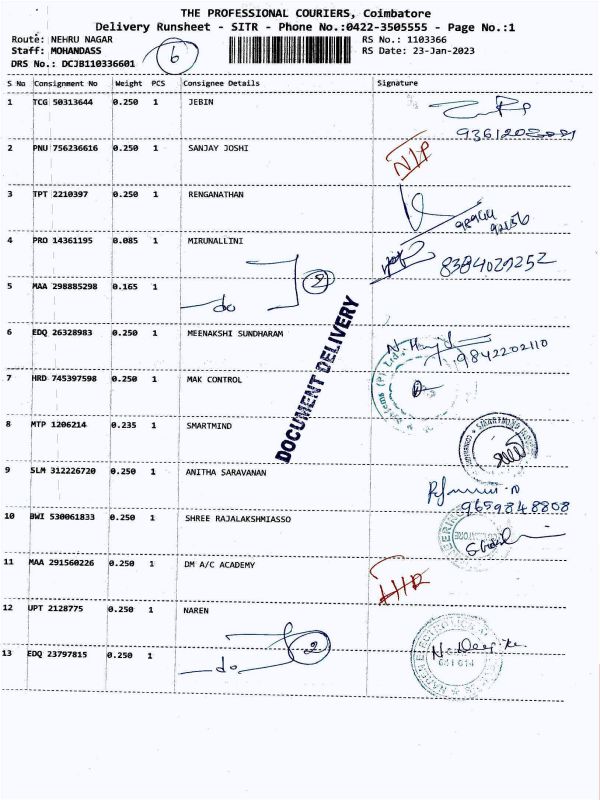 THE PROFESSIONAL COURIERS, Coimbatore
Delivery Runsheet - SITR - Phone No.:0422-3505555 - Page No.:1
Route: NEHRU NAGAR RS No.: 1103366
Staff: MOHANDASS RS Date: 23-Jan-2023
DRS No.: DCJB110336601 6
S No Consignment No Weight PCS Consignee Details Signature
1 TCG 50313644 0.250 1 JEBIN
2 PNU 756236616 0.250 1 SANJAY JOSHI
3 TPT 2210397 0.250 1 RENGANATHAN
4 PRO 14361195 0.085 1 MIRUNALLINI
8384029252
5 MAA 298885298 0.165 1 do 2
DOCUMENT DELIVERY
6 EDQ 26328983 0.250 1 MEENAKSHI SUNDHARAM
9842202110
7 HRD 745397598 0.250 1 MAK CONTROL
8 MTP 1206214 0.235 1 SMARTMIND
9 SLM 312226720 0.250 1 ANITHA SARAVANAN
9659848808
10 BWI 530061833 0.250 1 SHREE RAJALAKSHMIASSO
11 MAA 291560226 0.250 1 DM A/C ACADEMY
12 UPT 2128775 0.250 1 NAREN
13 EDQ 23797815 0.250 1 do 2